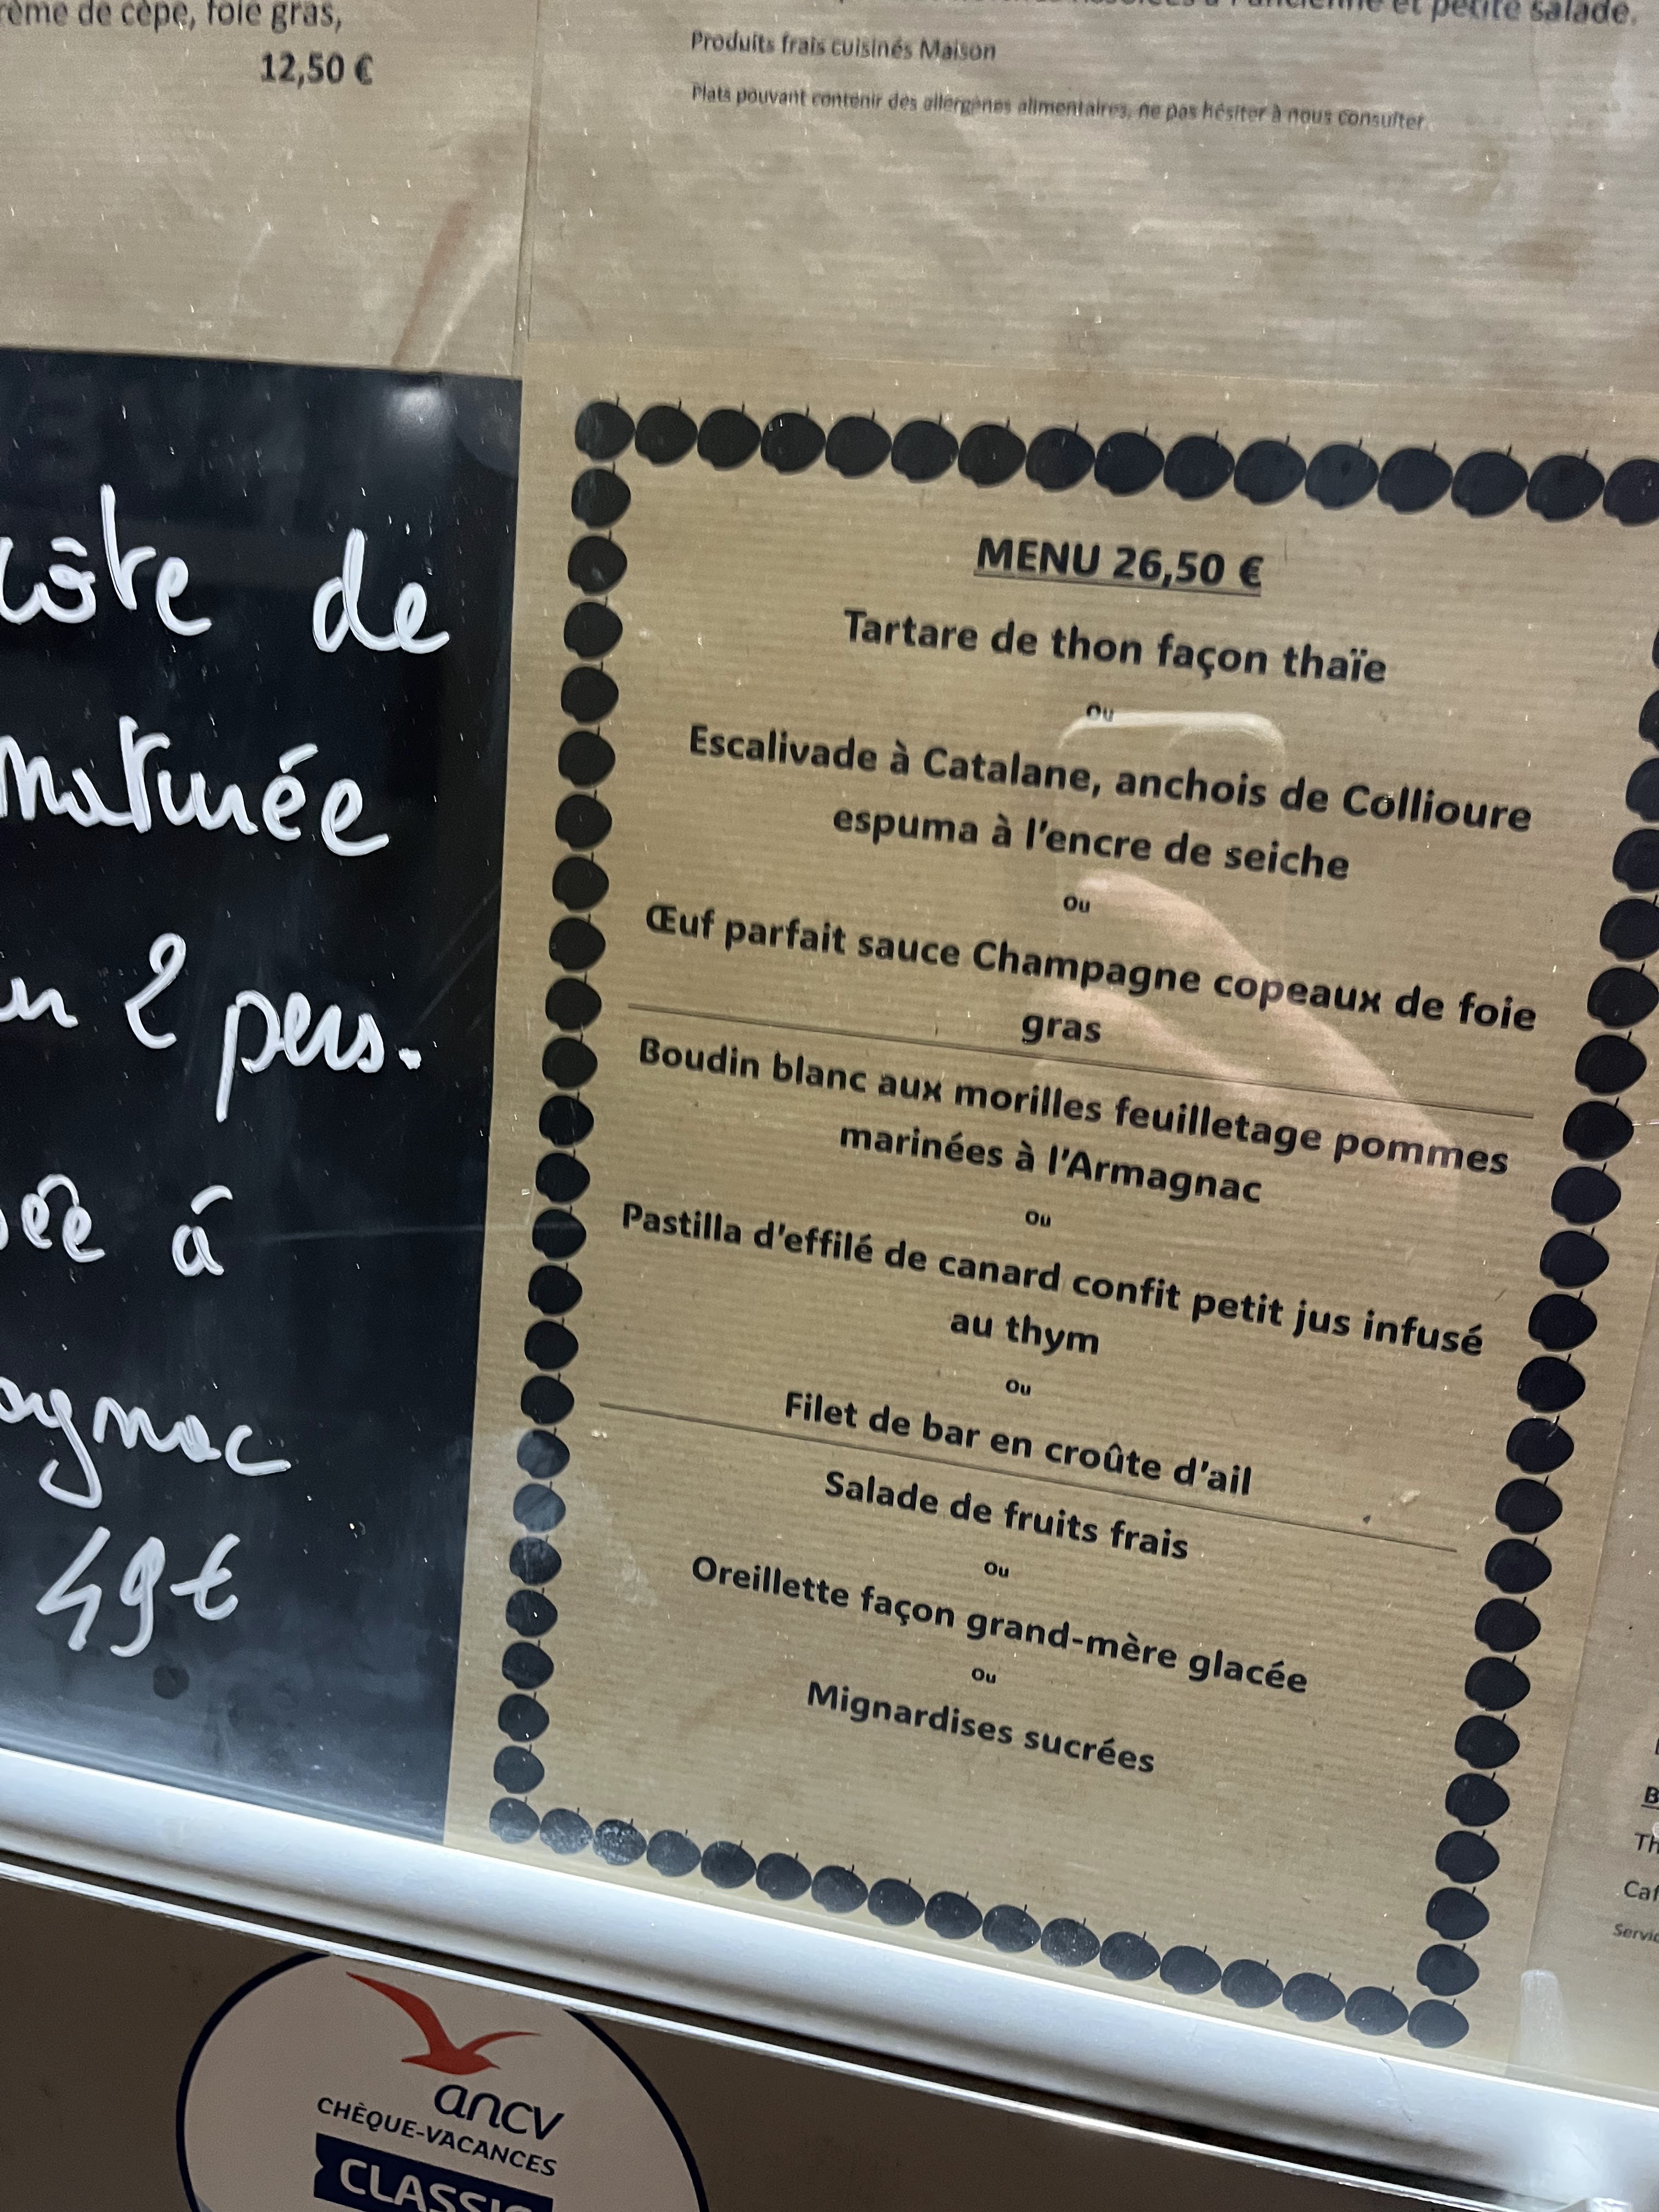 crème de cèpe, foie gras,
12,50 €
à l'ancienne et petite salade.
Produits frais cuisinés Maison
Plats pouvant contenir des allergènes alimentaires, ne pas hésiter à nous consulter.
côte de
maturée
2 pers.
à
49€
MENU 26,50 €
Tartare de thon façon thaïe
Ou
Escalivade à Catalane, anchois de Collioure
espuma à l'encre de seiche
Ou
Œuf parfait sauce Champagne copeaux de foie
gras
Boudin blanc aux morilles feuilletage pommes
marinées à l'Armagnac
Ou
Pastilla d'effilé de canard confit petit jus infusé
au thym
Ou
Filet de bar en croûte d'ail
Salade de fruits frais
Ou
Oreillette façon grand-mère glacée
Ou
Mignardises sucrées
ancv
CHÈQUE-VACANCES
CLASSIC